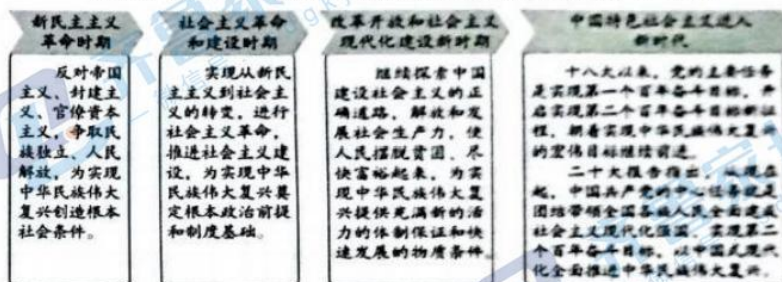 新民主主义
革命时期
反对帝国
主义、封建主
义、官僚资本
主义，争取民
族独立、人民
解放，为实现
中华民族伟大
复兴创造根本
社会条件。
社会主义革命
和建设时期
实现从新民
主主义到社会主
义的转变，进行
社会主义革命，
推进社会主义建
设，为实现中华
民族伟大复兴奠
定根本政治前提
和制度基础。
改革开放和社会主义
现代化建设新时期
继续探索中国
建设社会主义的正
确道路，解放和发
展社会生产力，使
人民摆脱贫困、尽
快富裕起来，为实
现中华民族伟大复
兴提供充满新的活
力的体制保证和快
速发展的物质条件。
中国特色社会主义进入
新时代
十八大以来，党的主要任务
是实现第一个百年奋斗目标，开
启实现第二个百年奋斗目标新征
程，朝着实现中华民族伟大复兴
的宏伟目标继续前进。
二十大报告指出，从现在
起，中国共产党的中心任务就是
团结带领全国各族人民全面建成
社会主义现代化强国、实现第二
个百年奋斗目标，以中国式现代
化全面推进中华民族伟大复兴。